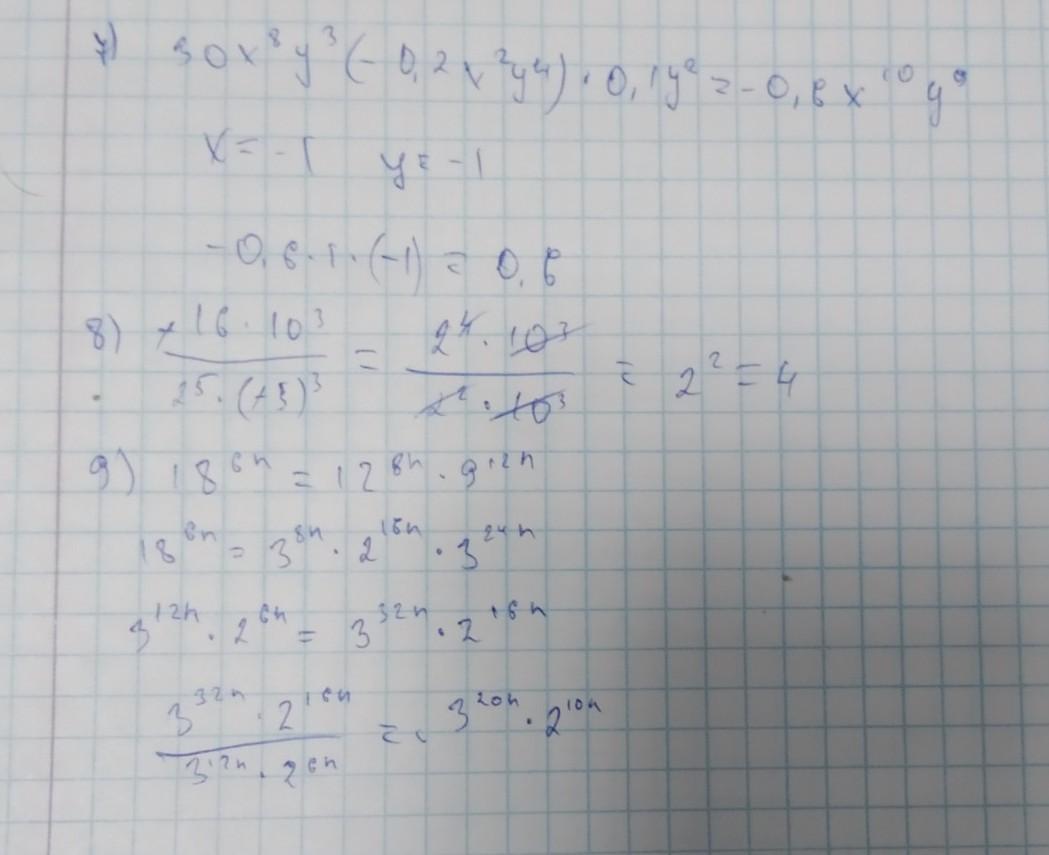 7) 30x⁸y³(-0,2x²y⁴)·0,1y²=-0,6x¹⁰y⁹
x=-1 y=-1
-0,6·1·(-1)=0,6
8) +16·10³/2⁵·(+5)³ = 2⁴·10³/2²·10³ = 2²=4
9) 18⁶ⁿ=12⁸ⁿ·9¹²ⁿ
18⁶ⁿ=3⁸ⁿ·2¹⁶ⁿ·3²⁴ⁿ
3¹²ⁿ·2⁶ⁿ=3³²ⁿ·2¹⁶ⁿ
3³²ⁿ·2¹⁶ⁿ/3¹²ⁿ·2⁶ⁿ = 3²⁰ⁿ·2¹⁰ⁿ